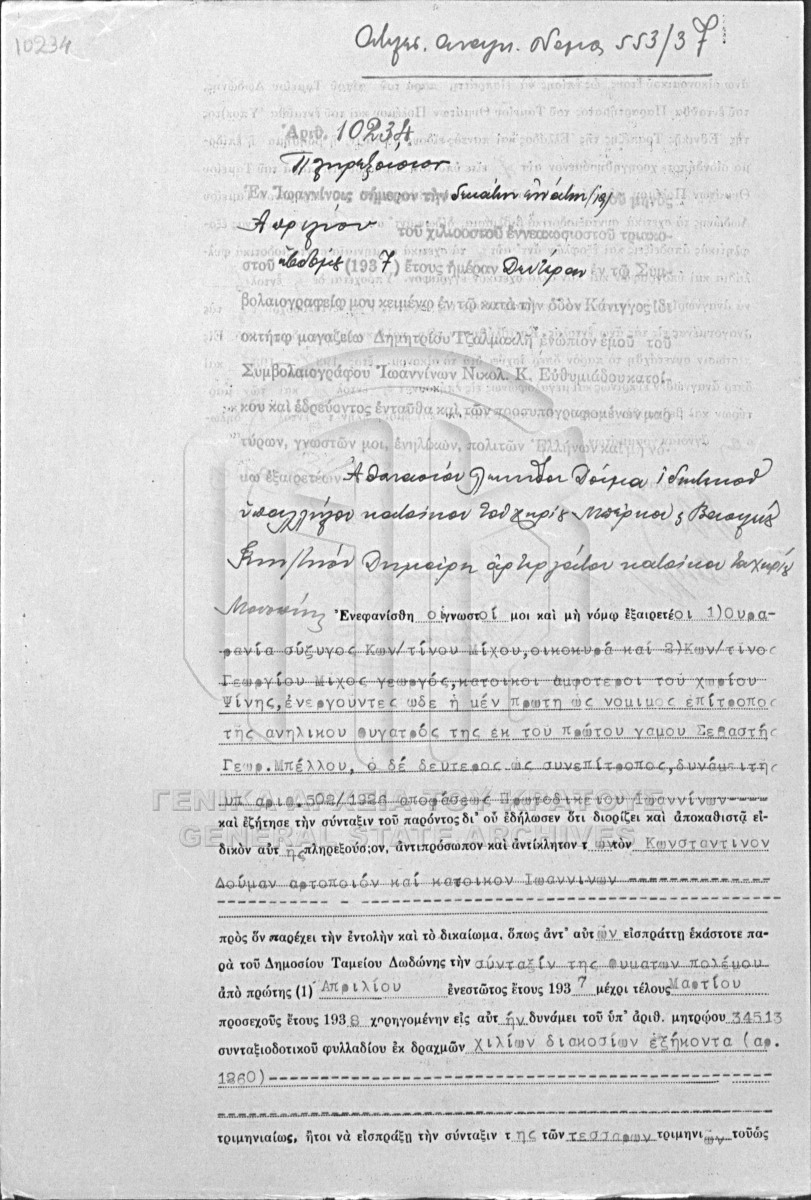 10234
553/37
Ἀριθ. 10234
Πληρεξούσιον
Ἐν Ἰωαννίνοις σήμερον τὴν δεκάτην ἐνάτην (19) τοῦ μηνὸς
Ἀπριλίου τοῦ χιλιοστοῦ ἐννεακοσιοστοῦ τριακο-
στοῦ ἑβδόμου (1937) ἔτους ἡμέραν Δευτέραν ἐν τῷ Συμ-
βολαιογραφείῳ μου κειμένῳ ἐν τῷ κατὰ τὴν ὁδὸν Κάνιγγος ἰδι-
οκτήτῳ μαγαζείῳ Δημητρίου Τζαλμακλῆ ἐνώπιον ἐμοῦ τοῦ
Συμβολαιογράφου Ἰωαννίνων Νικολ. Κ. Εὐθυμιάδου κατοί-
κου καὶ ἑδρεύοντος ἐνταῦθα καὶ τῶν προσυπογραφομένων μαρ-
τύρων, γνωστῶν μοι, ἐνηλίκων, πολιτῶν Ἑλλήνων καὶ μὴ νό-
μῳ ἐξαιρετέων Ἀθανασίου Δούμα ἰδιωτικοῦ
ὑπαλλήλου κατοίκου τοῦ χωρίου
ἀρτεργάτου κατοίκου τοῦ χωρίου
Ἐνεφανίσθη οἱ γνωστοί μοι καὶ μὴ νόμῳ ἐξαιρετέοι 1)Ουρα-
ρανία σύζυγος Κων/τίνου Μίχου,οικοκυρά καί 2)Κων/τίνος
Γεωργίου Μίχος γεωργός,κάτοικοι άμφότεροι τού χωρίου
Ψίνης,ἐνεργούντες ώδε ή μέν πρώτη ώς νόμιμος επίτροπος
τής ανηλίκου θυγατρός της έκ τού πρώτου γάμου Σεβαστής
Γεωρ.Μπέλλου, ο δέ δεύτερος ώς συνεπίτροπος,δυνάμει τής
υπ αριθ.502/1926 αποφάσεως Πρωτοδικείου Ιωαννίνων----
ΓΕΝΙΚΑ ΑΡΧΕΙΑ ΤΟΥ ΚΡΑΤΟΥΣ
καὶ ἐζήτησε τὴν σύνταξιν τοῦ παρόντος δι' οὗ ἐδήλωσεν ὅτι διορίζει καὶ ἀποκαθιστᾷ εἰ-
GENERAL STATE ARCHIVES
δικὸν αὐτῆς πληρεξούσιον, ἀντιπρόσωπον καὶ ἀντίκλητον τ ων τὸν Κωνσταντίνον
Δούμαν αρτοποιόν καί κάτοικον Ιωαννίνων ----------------
πρὸς ὃν παρέχει τὴν ἐντολὴν καὶ τὸ δικαίωμα, ὅπως ἀντ' αὐτῶν εἰσπράττῃ ἑκάστοτε πα-
ρὰ τοῦ Δημοσίου Ταμείου Δωδώνης τὴν σύνταξίν της θυμάτων πολέμου
ἀπὸ πρώτης (1) Απριλίου ἐνεστῶτος ἔτους 1937 μέχρι τέλους Μαρτίου
προσεχοῦς ἔτους 1938 χορηγομένην εἰς αὐτήν δυνάμει τοῦ ὑπ' ἀριθ. μητρῴου 34513
συνταξιοδοτικοῦ φυλλαδίου ἐκ δραχμῶν χιλίων διακοσίων ἑξήκοντα (αρ.
1260)----------------
τριμηνιαίως, ἤτοι νὰ εἰσπράξῃ τὴν σύνταξιν τ ης τῶν τεσσάρων τριμηνιῶν τοῦὡς